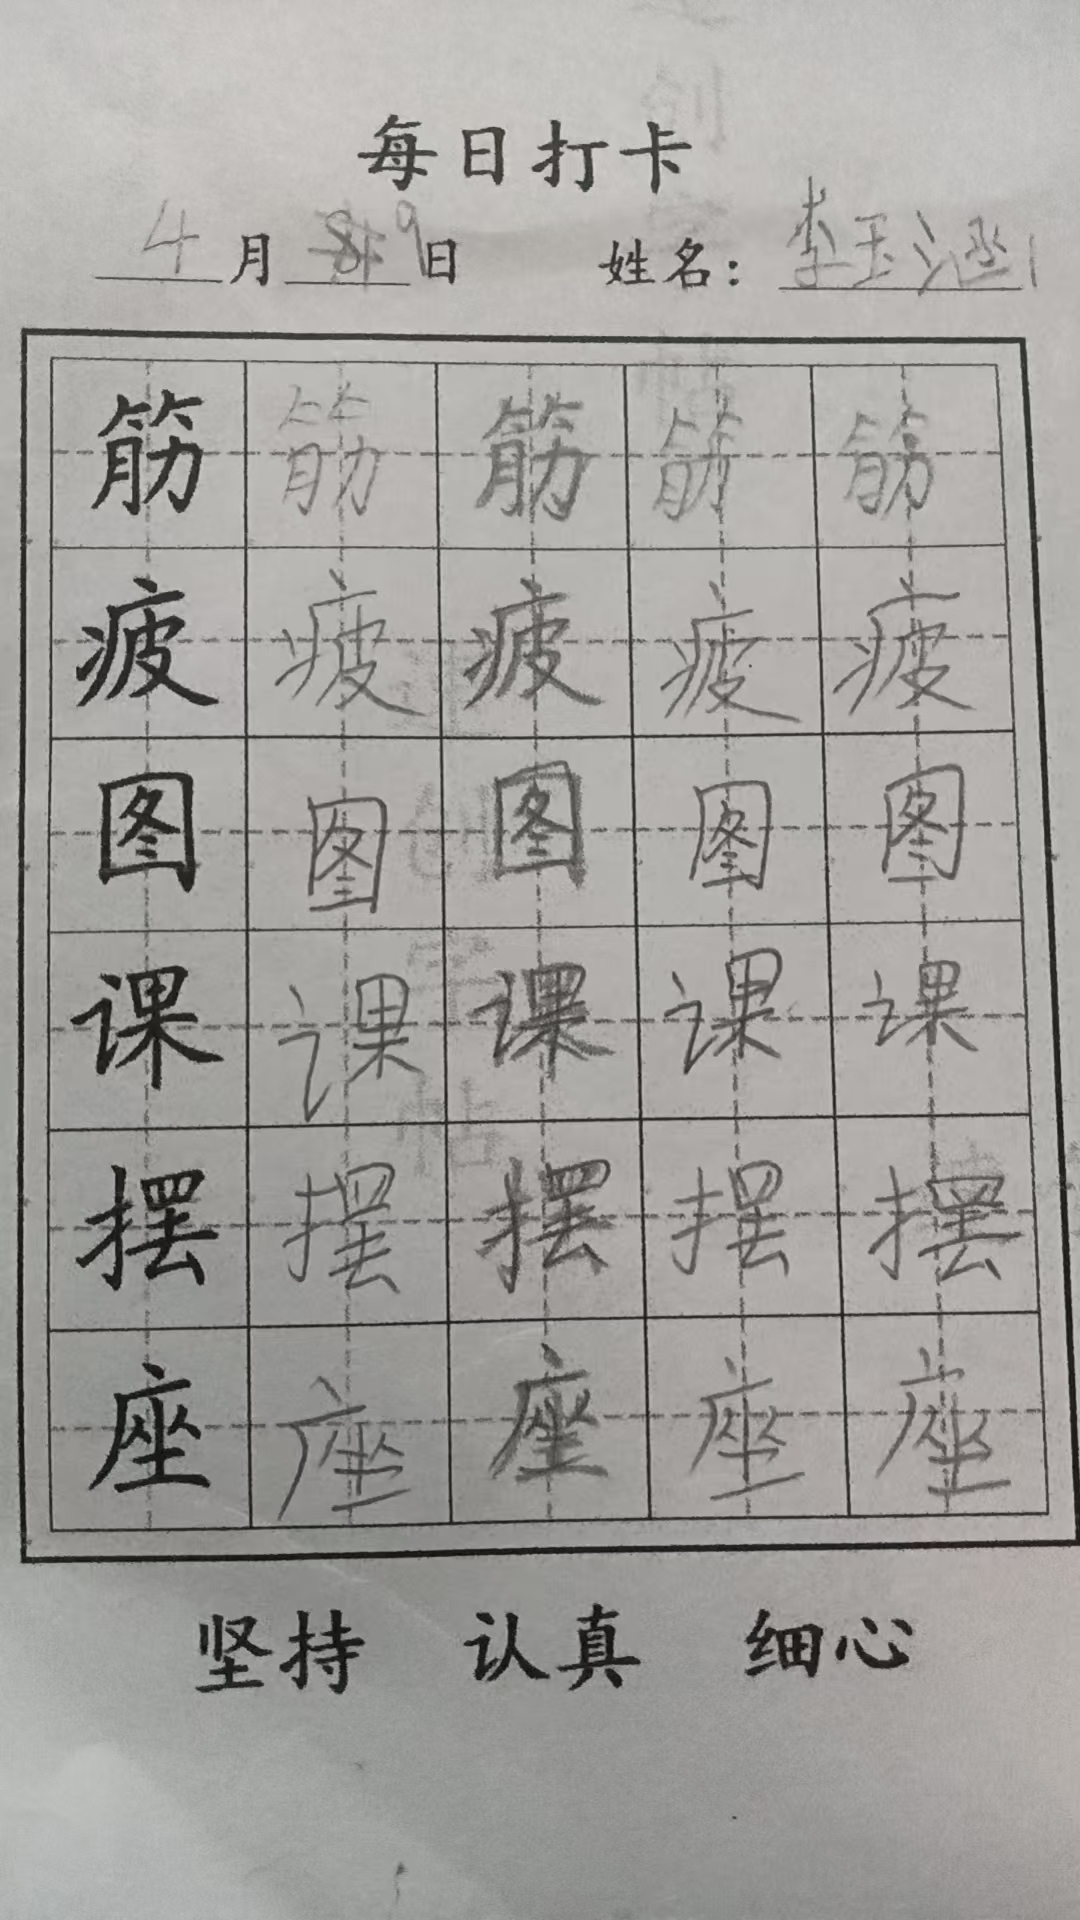 每日打卡
4月9日 姓名：李玉涵
筋 筋 筋 筋 筋
疲 疲 疲 疲 疲
图 图 图 图 图
课 课 课 课 课
摆 摆 摆 摆 摆
座 座 座 座 座
坚持 认真 细心